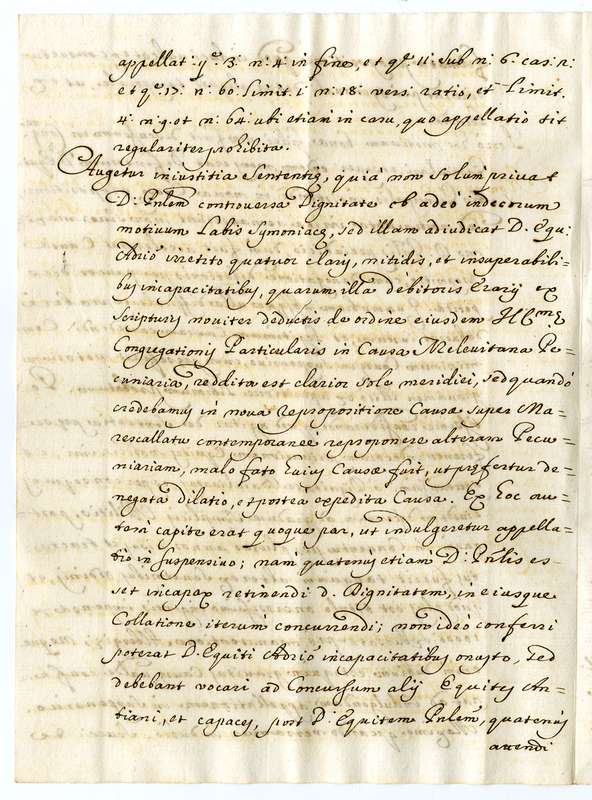 appellat: q.e 3: n: 4 in fine, et q.e 11: Sub n: 6. cas: n:
et q.e 17: n: 60: limit. i n: 18: vers: ratio, et Limit.
4: n: 9. et n: 64: ubi etiam in casu, quo appellatio sit
regulariter prohibita.
Augetur iniustitia Sententię, quià non solum privat
D: Pnlem controversa Dignitate ob adeò indecorum
motivum Labis Symoniacę, sed illam adiudicat D. Equ:
Adriò irretito quatuor clarij, nitidis, et insuperabili=
bus incapacitatibus, quarum illa debitoris Erarij ex
scripturis noviter deductis de ordine eiusdem
Congregationis Particularis in Causa Melevitana Pe=
cuniaria, reddita est clarior sole meridiei, sed quandò
credebamus in nova repropositione Causæ super Ma=
rescallatu contemporaneè reproponere alteram Pecu=
niariam, malo fato huius Causæ fuit, ut pręfertur de=
negata dilatio, et posteà expedita Causa. Ex hoc au=
tem capite erat quoque par, ut indulgeretur appella=
tio in suspensivo; nam quatenus etiam D: Pnlis es=
set incapax retinendi d. Dignitatem, in eiusque
Collatione iterum concurrendi; non ideò conferri
poterat D. Equiti Adriò incapacitatibus onusto, sed
debebant vocari ad Concursum alij Equites An=
tiani, et capaces, post D: Equitem Pnlem, quatenus